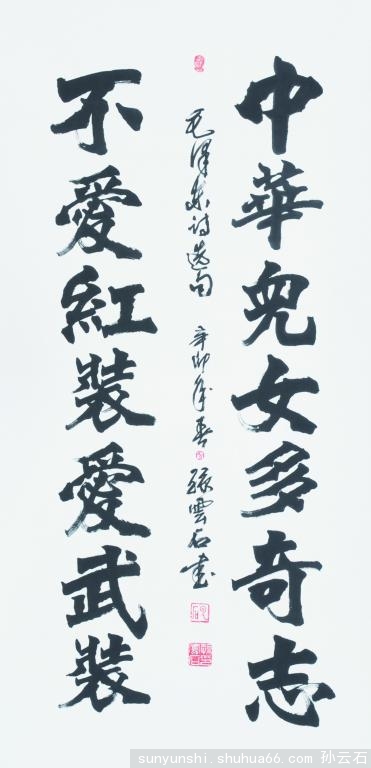 中華兒女多奇志
毛澤東诗选句 辛卯年春 孫雲石书
不愛紅装愛武装
sunyunshi.shuhua66.com 孙云石